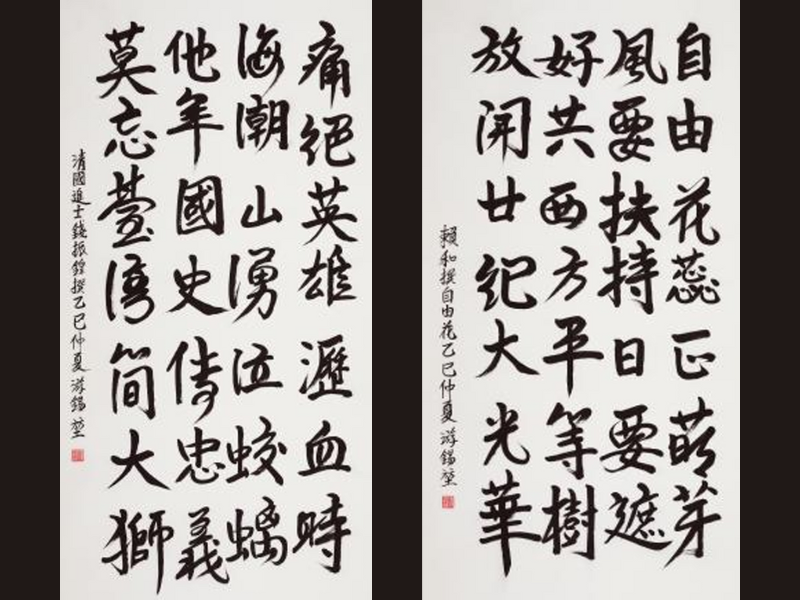 自由花蕊正萌芽
風要扶持日要遮
好共西方平等樹
放開廿紀大光華
賴和撰自由花乙巳仲夏 游錫堃
痛絕英雄瀝血時
海潮山湧泣蛟螭
他年國史傳忠義
莫忘臺灣簡大獅
清國進士錢振鍠撰乙巳仲夏 游錫堃